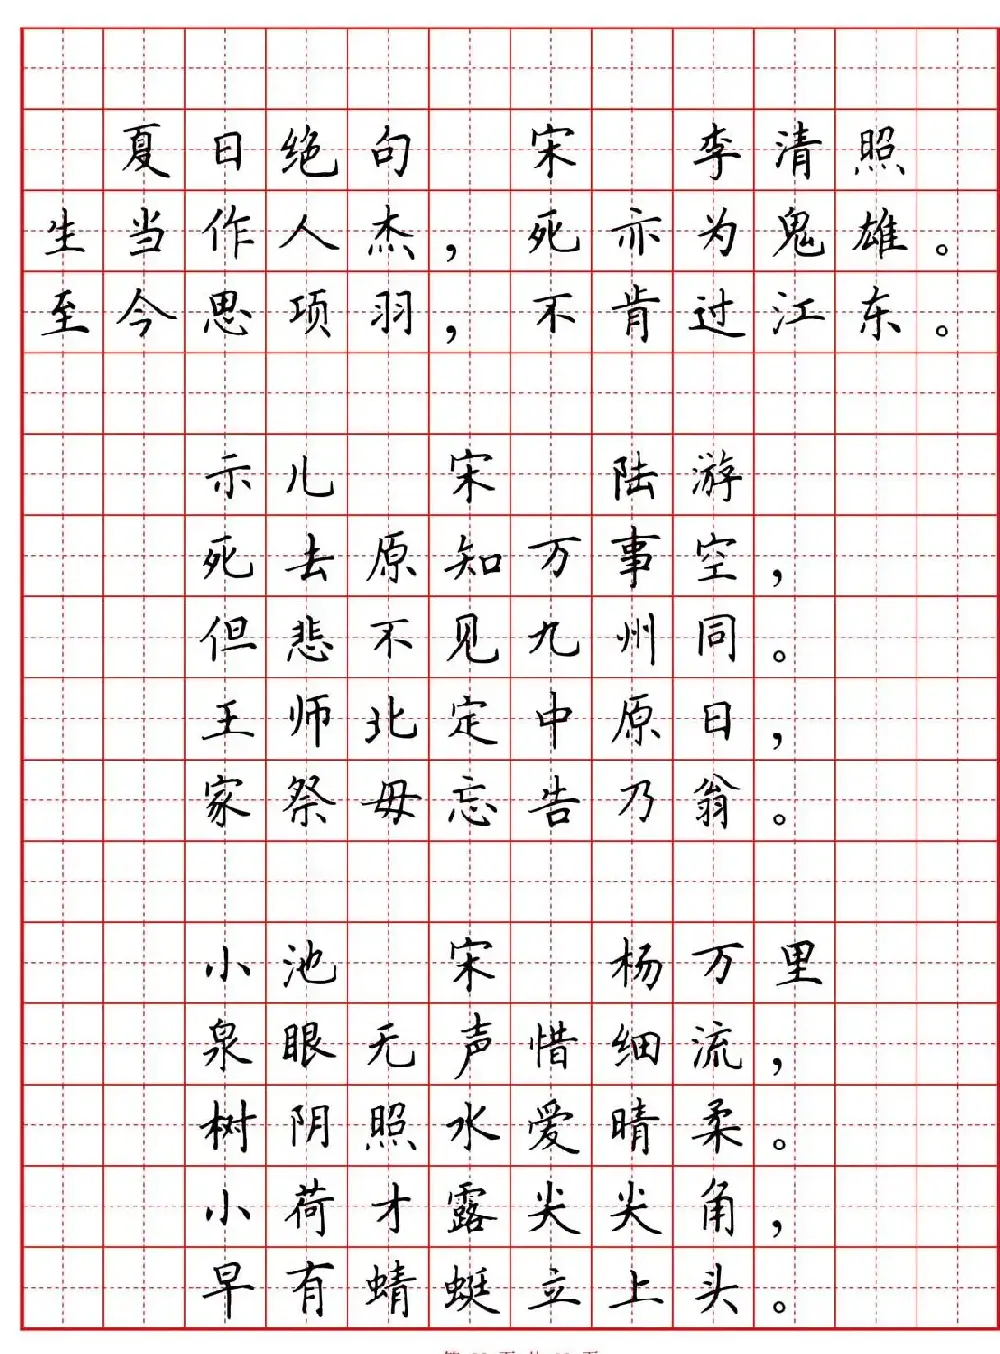 夏日绝句 宋 李清照
生当作人杰，死亦为鬼雄。
至今思项羽，不肯过江东。
示儿 宋 陆游
死去原知万事空，
但悲不见九州同。
王师北定中原日，
家祭毋忘告乃翁。
小池 宋 杨万里
泉眼无声惜细流，
树阴照水爱晴柔。
小荷才露尖尖角，
早有蜻蜓立上头。